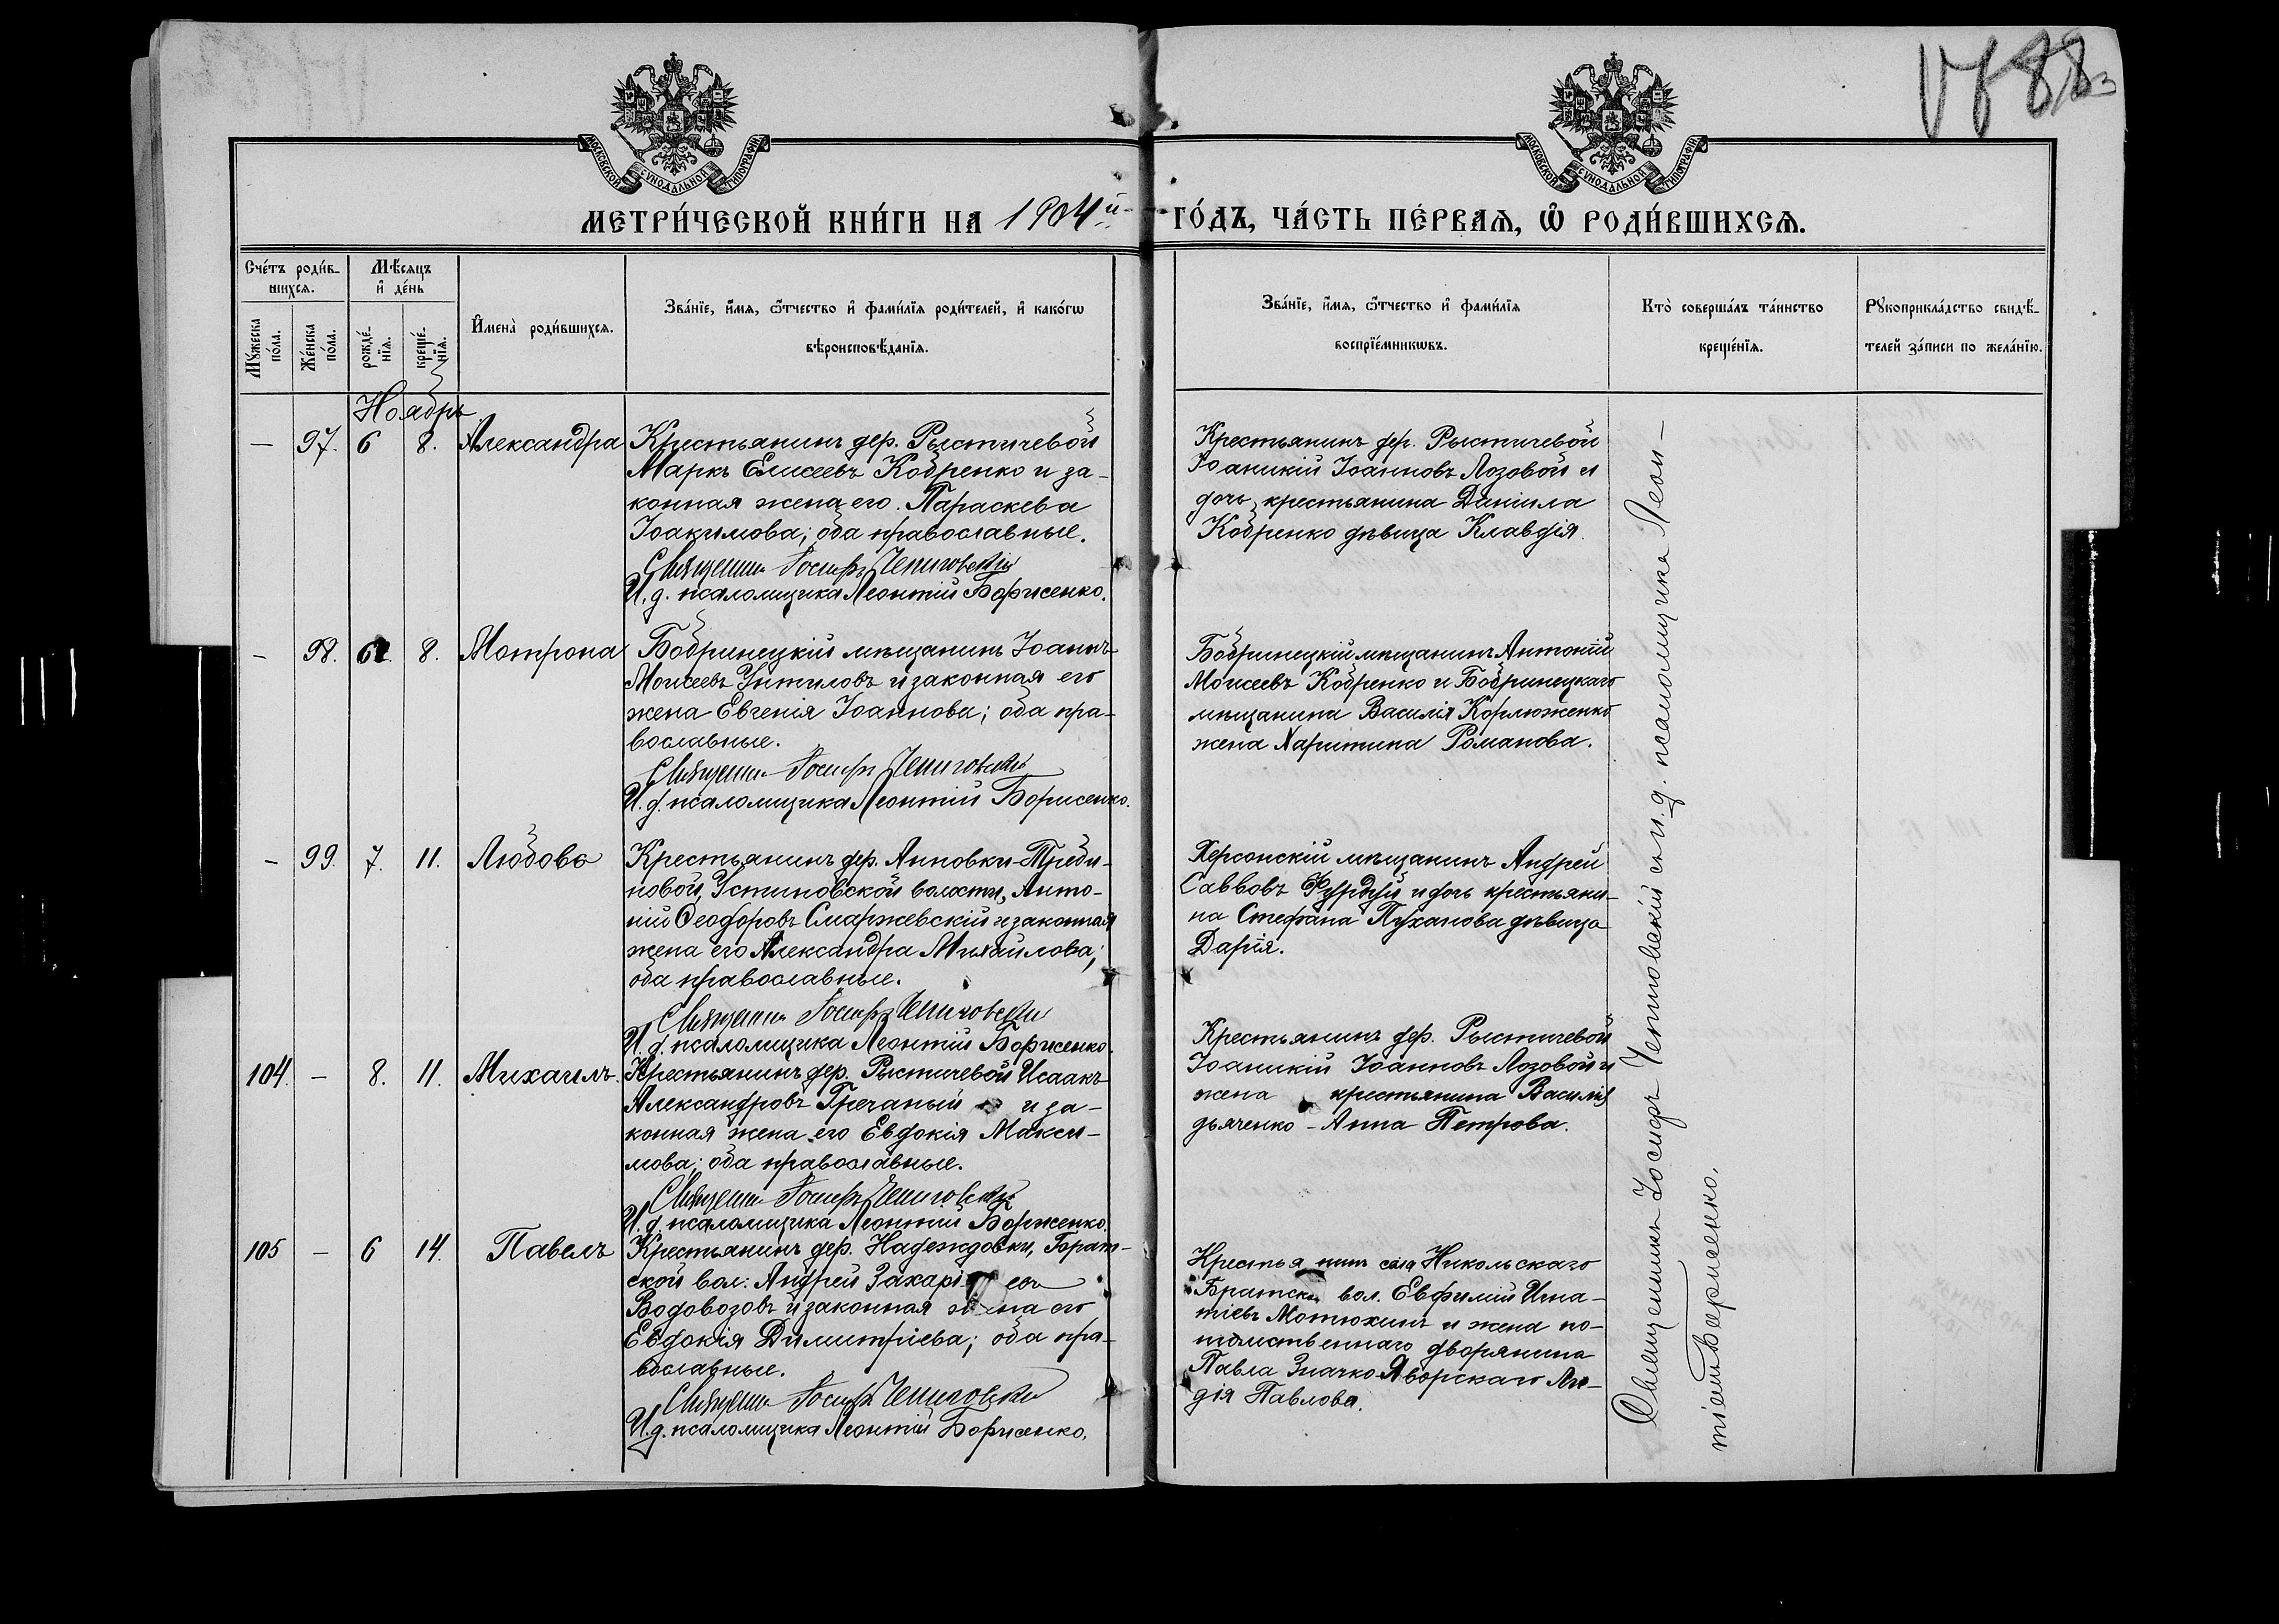 883
МОСКОВСКОЙ СѴНОДАЛЬНОЙ ТИПОГРАФІИ
МОСКОВСКОЙ СѴНОДАЛЬНОЙ ТИПОГРАФІИ
МЕТРИ́ЧЕСКОЙ КНИ́ГИ НА 1904й ГО́ДЪ, ЧА́СТЬ ПЕ́РВАЯ, Ѡ РОДИ́ВШИХСЯ.
Сче́тъ роди́в-
шихся.
Мѣ́сяцъ
и де́нь
Мꙋ́жеска
по́ла.
Же́нска
по́ла.
рожде́-
нія.
креще́-
нія.
Имена̀ роди́вшихся.
Зва́нїе, и́мя, ѻ́тчество и фами́лїя роди́телей, и како́гѡ
вѣроисповѣ́данїя.
Зва́нїе, и́мя, ѻ́тчество и фами́лїя
воспрїе́мникѡвъ.
Кто̀ соверша́лъ та́инство
креще́нїя.
Рꙋкоприкла́дство свидѣ́-
телей за́писи по жела́нїю.
Ноябрь
— 97. 6 8. Александра
Крестьянинъ дер. Рыстичевой
Маркъ Елисеевъ Кобренко и за-
конная жена его Параскева
Іоакимова; оба православные.
Священникъ Іосифъ
И. д. псаломщика Леонтій Борисенко.
Крестьянинъ дер. Рыстичевой
Іоаникій Іоанновъ Лозовой и
дочь крестьянина Даніила
Кобренко дѣвица Клавдія.
— 98. 6. 8. Мотрона
Бобринецкій мѣщанинъ Іоаннъ
Моисеевъ и законная его
жена Евгенія Іоаннова; оба пра-
вославные.
Священникъ Іосифъ
И. д. псаломщика Леонтій Борисенко.
Бобринецкій мѣщанинъ Антоній
Моисеевъ Кобренко и Бобринецкаго
мѣщанина Василія Корлюженко
жена Харитина Романова.
— 99. 7. 11. Любовь
Крестьянинъ дер. Анновки-Треби-
новой, Устиновской волости, Анто-
ній Ѳеодоровъ Смаржевскій и законная
жена его Александра Михайлова;
оба православные.
Священникъ Іосифъ
И. д. псаломщика Леонтій Борисенко.
Херсонскій мѣщанинъ Андрей
Саввовъ и дочь крестьяни-
на Стефана Пуханова дѣвица
Дарія.
104. — 8. 11. Михаилъ.
Крестьянинъ дер. Рыстичевой Исаакъ
Александровъ Гречаный и за-
конная жена его Евдокія Макси-
мова; оба православные.
Священникъ Іосифъ
И. д. псаломщика Леонтій Борисенко.
Крестьянинъ дер. Рыстичевой
Іоаникій Іоанновъ Лозовой и
жена крестьянина Василія
Дьяченко - Анна Петрова.
105 — 6 14. Павелъ
Крестьянинъ дер. Надеждовки,
ской вол. Андрей Захаріевъ
Водовозовъ и законная жена его
Евдокія Димитріева; оба пра-
вославные.
Священникъ Іосифъ
И. д. псаломщика Леонтій Борисенко.
Крестьянинъ села Никольскаго
Братск. вол. Евфимій Игна-
тіевъ Мотюхинъ и жена по-
томственнаго дворянина
Павла Значко-Яворскаго Ли-
дія Павлова.
Священникъ Іосифъ съ и. д. псаломщика Леон-
тіемъ Борисенко.